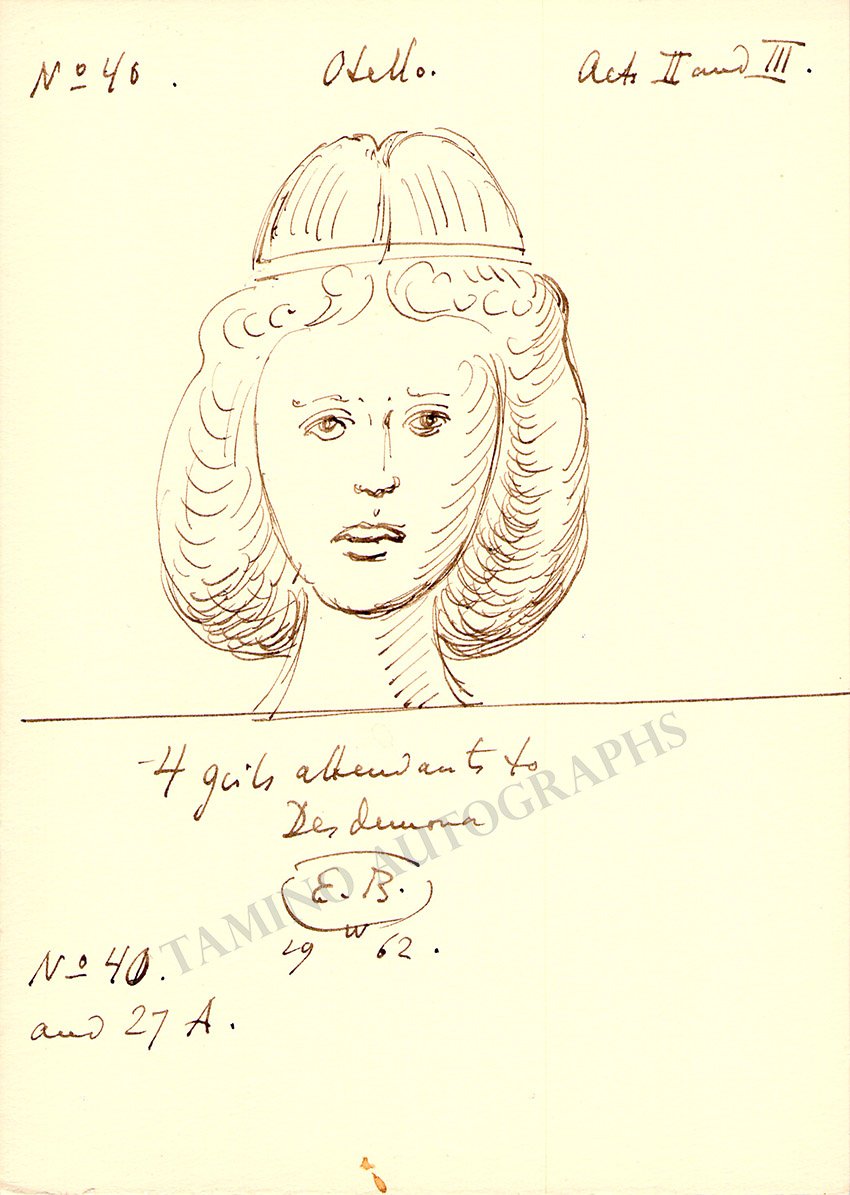 No 40. Otello. Acts II and III.
4 girls attendants to
Desdemona
E. B.
W
19 62.
No 40.
and 27 A.
TAMINO AUTOGRAPHS